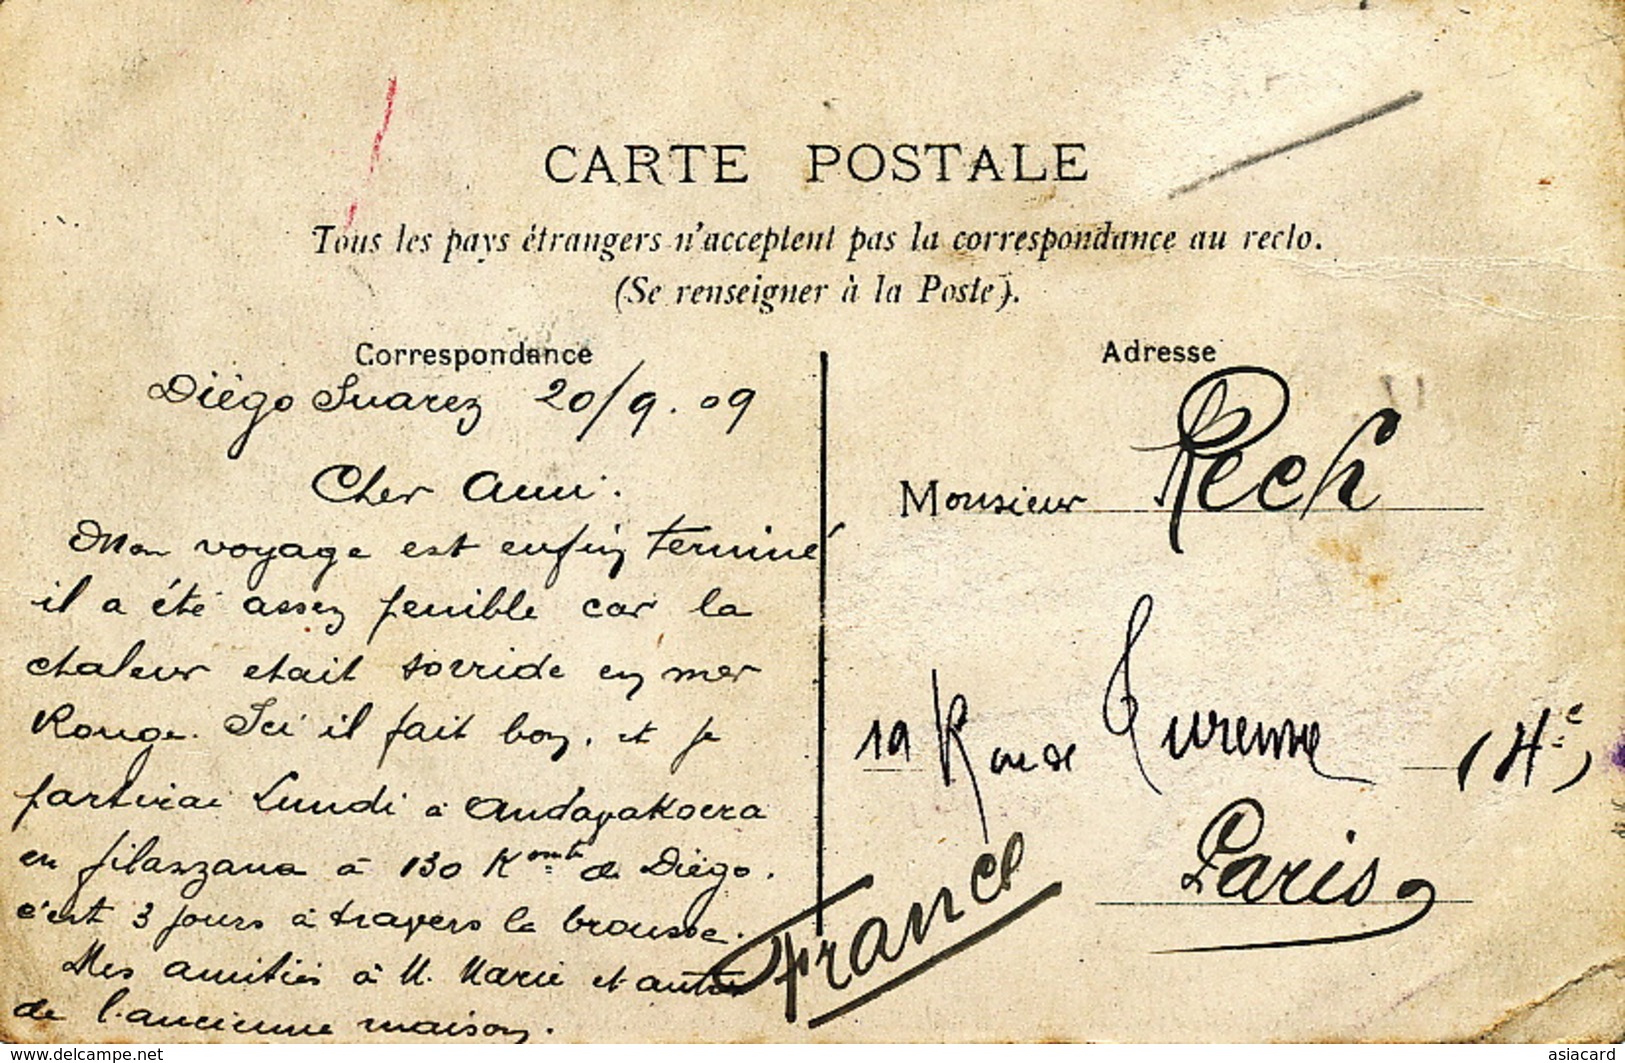 CARTE POSTALE
Tous les pays étrangers n'acceptent pas la correspondance au recto.
(Se renseigner à la Poste).
Correspondance
Diégo Suarez 20/9.09
Cher Ami.
Mon voyage est enfin terminé
il a été assez penible car la
chaleur etait torride en mer
Rouge. Ici il fait bon, et je
partirai Lundi à Andapakoera
en filanzana à 130 Komt de Diégo.
c'est 3 jours à travers la brousse.
Mes amitiés à M. Marie et autres
de l'ancienne maison.
Adresse
Monsieur Rech
19 Rue de Turenne (4e)
Paris
France
delcampe.net
asiacard